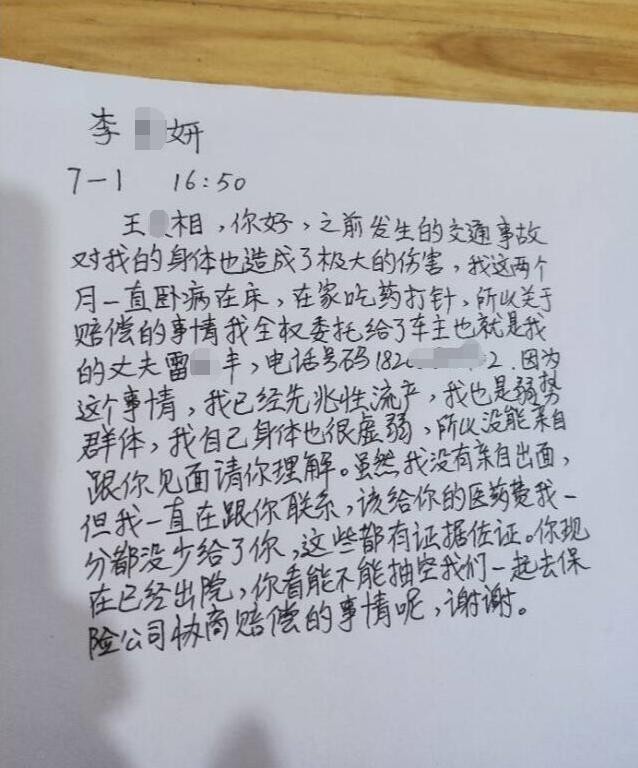 李 妍
7-1 16:50
王 相,你好,之前发生的交通事故
对我的身体也造成了极大的伤害,我这两个
月一直卧病在床,在家吃药打针,所以关于
赔偿的事情我全权委托给了车主也就是我
的丈夫雷 丰,电话号码182 2.因为
这个事情,我已经先兆性流产,我也是弱势
群体,我自己身体也很虚弱,所以没能亲自
跟你见面请你理解。虽然我没有亲自出面,
但我一直在跟你联系,该给你的医药费我一
分都没少给了你,这些都有证据佐证。你现
在已经出院,你看能不能抽空我们一起去保
险公司协商赔偿的事情呢,谢谢。